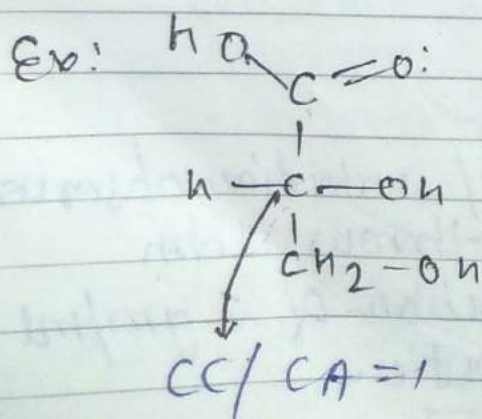 Ex: HO
C=O:
H—C—OH
CH2-OH
CC/CA=1